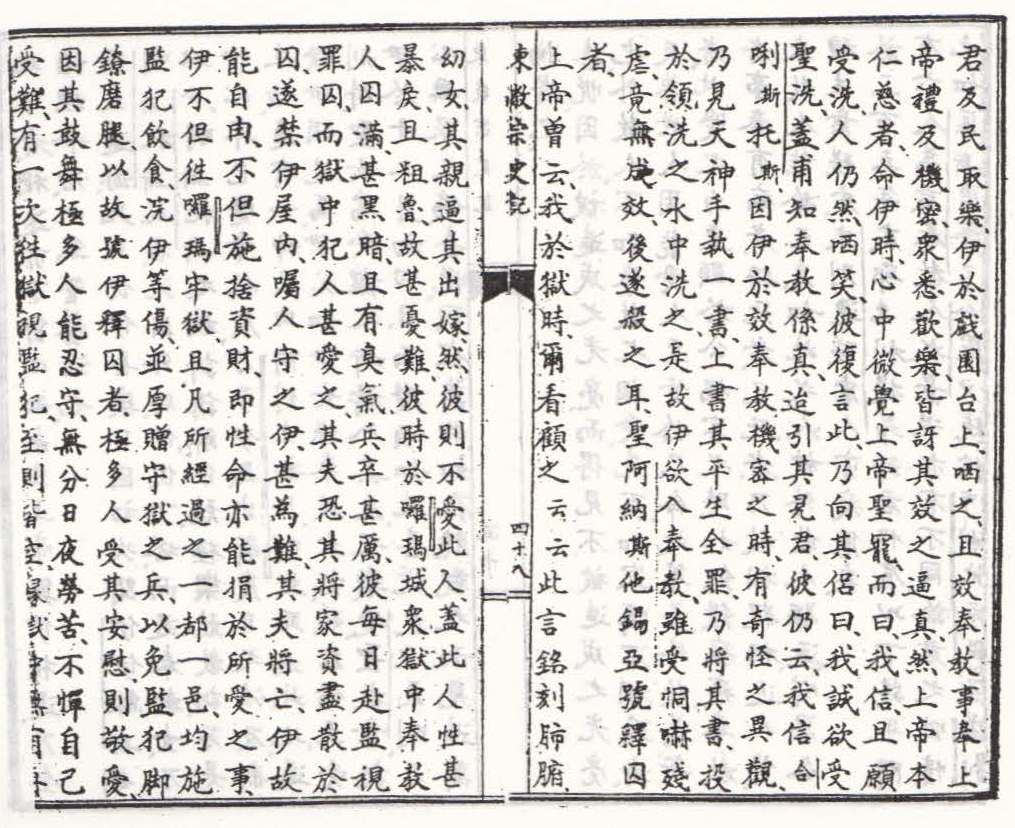 君及民取樂、伊於戲園台上、哂之、且效奉教事奉上
帝禮及機密、衆悉歡樂、皆訝其效之逼真、然上帝本
仁慈者、命伊時、心中微覺上帝聖寵、而曰、我信且願
受洗、人仍然哂笑、彼復言此、乃向其侶曰、我誠欲受
聖洗、蓋甫知奉教係真、迨引其見君、彼仍云、我信合
唎斯托斯、因伊於效奉教機密之時、有奇怪之異觀、
乃見天神手執一書、上書其平生全罪、乃將其書投
於領洗之水中洗之、是故伊欲今奉教、雖受恫嚇殘
虐、竟無成效、後遂殺之耳、聖阿納斯他錫亞號釋囚
者、
上帝曾云、我於獄時、爾看顧之云云、此言銘刻肺腑、
東教宗史記
四十八
幼女、其親逼其出嫁、然彼則不愛此人、蓋此人性甚
暴戾、且粗魯、故甚憂難、彼時於囉瑪城、衆獄中奉教
人囚滿、甚黑暗、且有臭氣、兵卒甚厲、彼每日赴監視
罪囚、而獄中犯人甚愛之、其夫恐其將家資盡散於
囚、遂禁伊屋內、囑人守之、伊甚為難、其夫將亡、伊故
能自由、不但施捨資財、即性命亦能捐於所愛之事、
伊不但往囉瑪牢獄、且凡所經過之一都一邑、均施
監犯飲食、浣伊等傷、並厚贈守獄之兵、以免監犯脚
鐐磨腿、以故號伊釋囚者、極多人受其安慰、則敬愛、
因其鼓舞、極多人能忍守、無分日夜勞苦、不憚自己
受難、有一次往獄視監犯、至則皆空、